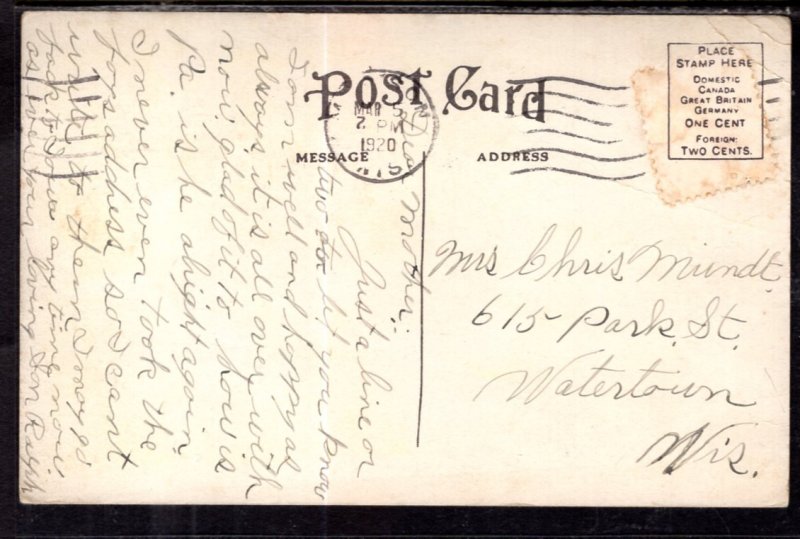 POST CARD
MESSAGE
ADDRESS
PLACE
STAMP HERE
DOMESTIC
CANADA
GREAT BRITAIN
GERMANY
ONE CENT
FOREIGN:
TWO CENTS.
MAR
2 PM
1920
WIS
Mrs Chris Mundt.
615 Park. St.
Watertown
Wis.
Dear Mother:
Just a line or
two to let you know
I am well and happy as
always, it is all over with
now glad of it to how is
Pa. is he alright again
I never even took the
boys address so I cant
write them I may go
back to any time now
as ever your loving Son Ralph